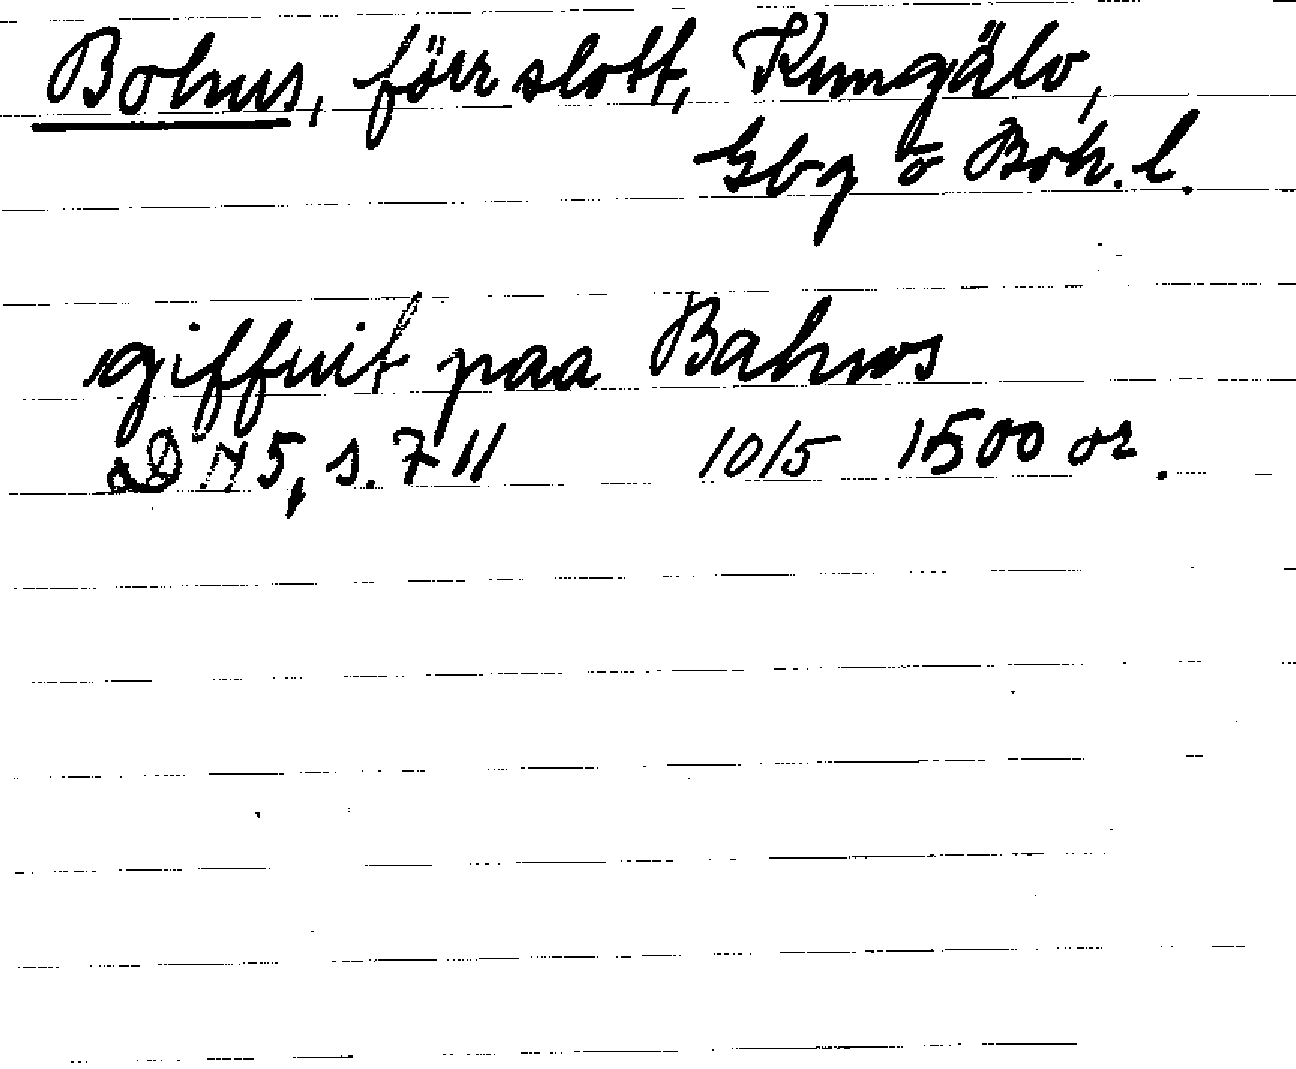 Bohus, förr slott, Kungälv,
Gbg o Boh. l.
giffuit paa Bahws
DN 5, s. 711 10/5 1500 or.